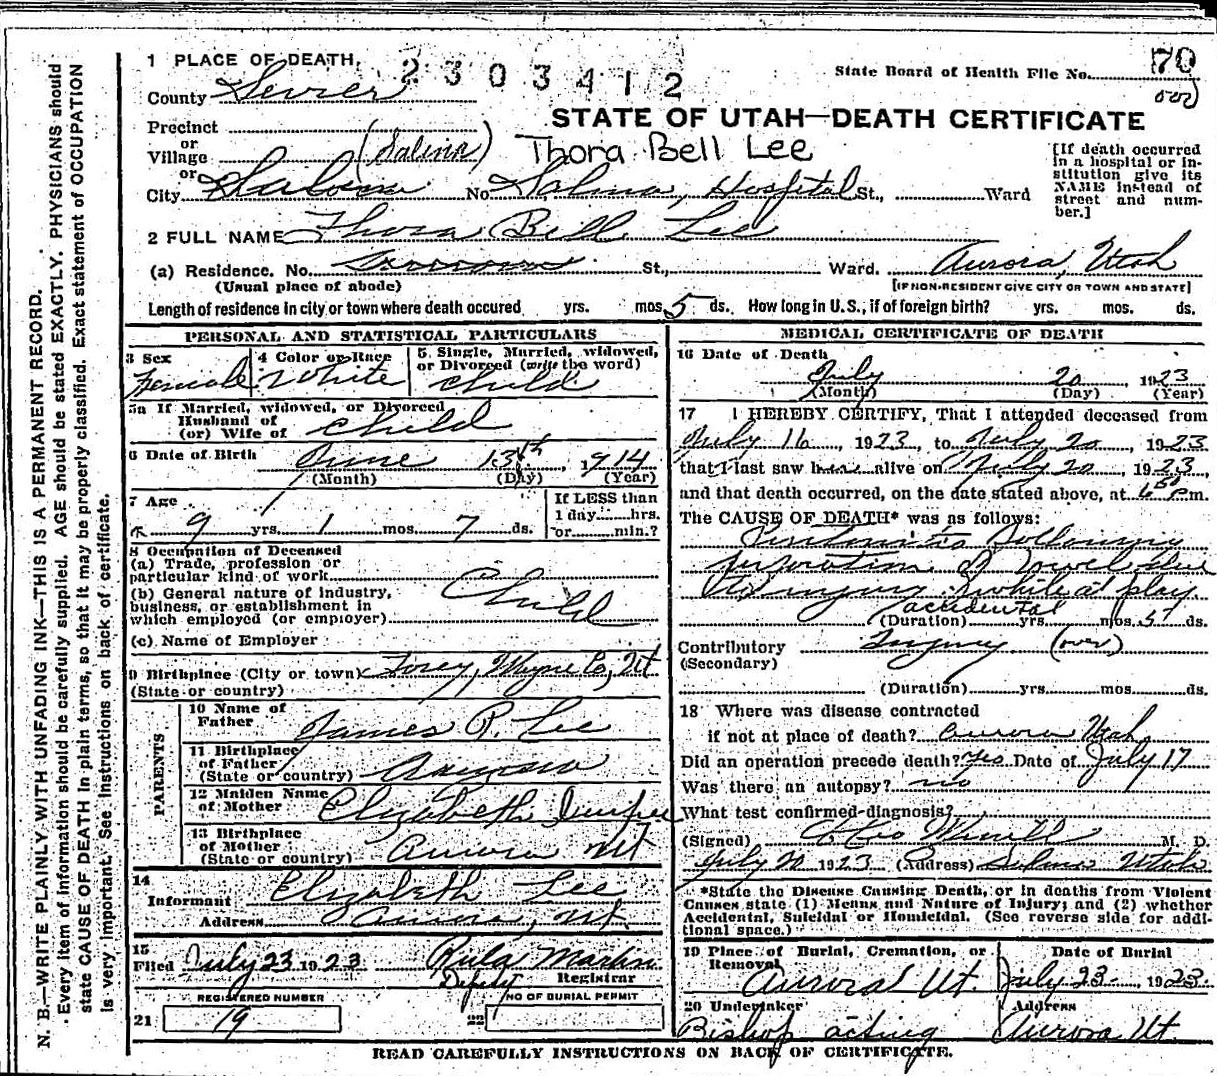 1 PLACE OF DEATH. 2303412
State Board of Health File No. 70
County Sevier (over)
STATE OF UTAH—DEATH CERTIFICATE
Precinct
or
Village (Salina) Thora Bell Lee
[If death occurred in a hospital or institution give its NAME instead of street and number.]
or
City Salina No. Salina, Hospital St., Ward
2 FULL NAME Thora Bell Lee
(a) Residence. No. St., Ward. Aurora, Utah
(Usual place of abode) [IF NON-RESIDENT GIVE CITY OR TOWN AND STATE]
Length of residence in city or town where death occured yrs. mos. 5 ds. How long in U.S., if of foreign birth? yrs. mos. ds.
PERSONAL AND STATISTICAL PARTICULARS
3 Sex Female
4 Color or Race White
5. Single, Married, widowed, or Divorced (write the word) Child
5a If Married, widowed, or Divorced
Husband of
(or) Wife of Child
6 Date of Birth June 13th, 1914
(Month) (Day) (Year)
7 Age
9 yrs. 1 mos. 7 ds.
If LESS than
1 day......hrs.
or......min.?
8 Occupation of Deceased
(a) Trade, profession or
particular kind of work
(b) General nature of industry,
business, or establishment in
which employed (or employer) Child
(c) Name of Employer
9 Birthplace (City or town) Torrey, Wayne Co, Ut
(State or country)
PARENTS
10 Name of
Father James P. Lee
11 Birthplace
of Father
(State or country)
12 Maiden Name
of Mother Elizabeth
13 Birthplace
of Mother
(State or country) Aurora Ut
14
Informant Elizabeth Lee
Address Aurora, Ut.
15
Filed July 23 1923 Rula Martin
Deputy Registrar
REGISTERED NUMBER NO OF BURIAL PERMIT
21 19 22
MEDICAL CERTIFICATE OF DEATH
16 Date of Death
July 20, 1923
(Month) (Day) (Year)
17 I HEREBY CERTIFY, That I attended deceased from
July 16, 1923, to July 20, 1923
that I last saw her alive on July 20, 1923,
and that death occurred, on the date stated above, at 6 50 P.m.
The CAUSE OF DEATH* was as follows:
Peritonitis Following
perforation of bowel due
to injury while at play
accidental
(Duration) yrs. mos. 5 ds.
Contributory Injury (over)
(Secondary)
(Duration) yrs. mos. ds.
18 Where was disease contracted
if not at place of death? Aurora Utah
Did an operation precede death? Yes Date of July 17
Was there an autopsy? no
What test confirmed diagnosis?
(Signed) M. D.
July 20 1923 (Address) Salina Utah
*State the Disease Causing Death, or in deaths from Violent
Causes state (1) Means and Nature of Injury; and (2) whether
Accidental, Suicidal or Homicidal. (See reverse side for addi-
tional space.)
19 Place of Burial, Cremation, or
Removal Aurora Ut.
Date of Burial
July 23 1923
20 Undertaker
Bishop acting
Address
Aurora Ut.
READ CAREFULLY INSTRUCTIONS ON BACK OF CERTIFICATE.
N. B.—WRITE PLAINLY WITH UNFADING INK—THIS IS A PERMANENT RECORD.
Every item of information should be carefully supplied. AGE should be stated EXACTLY. PHYSICIANS should
state CAUSE OF DEATH in plain terms, so that it may be properly classified. Exact statement of OCCUPATION
is very important. See instructions on back of certificate.